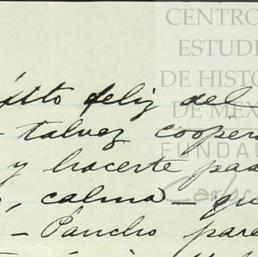 CENTRO
ESTUDI
DE HISTO
DE MÉX
FUNDAC
éxito feliz del
- talvez cooper
y hacerte pas
, calma - que
- Pancho pare